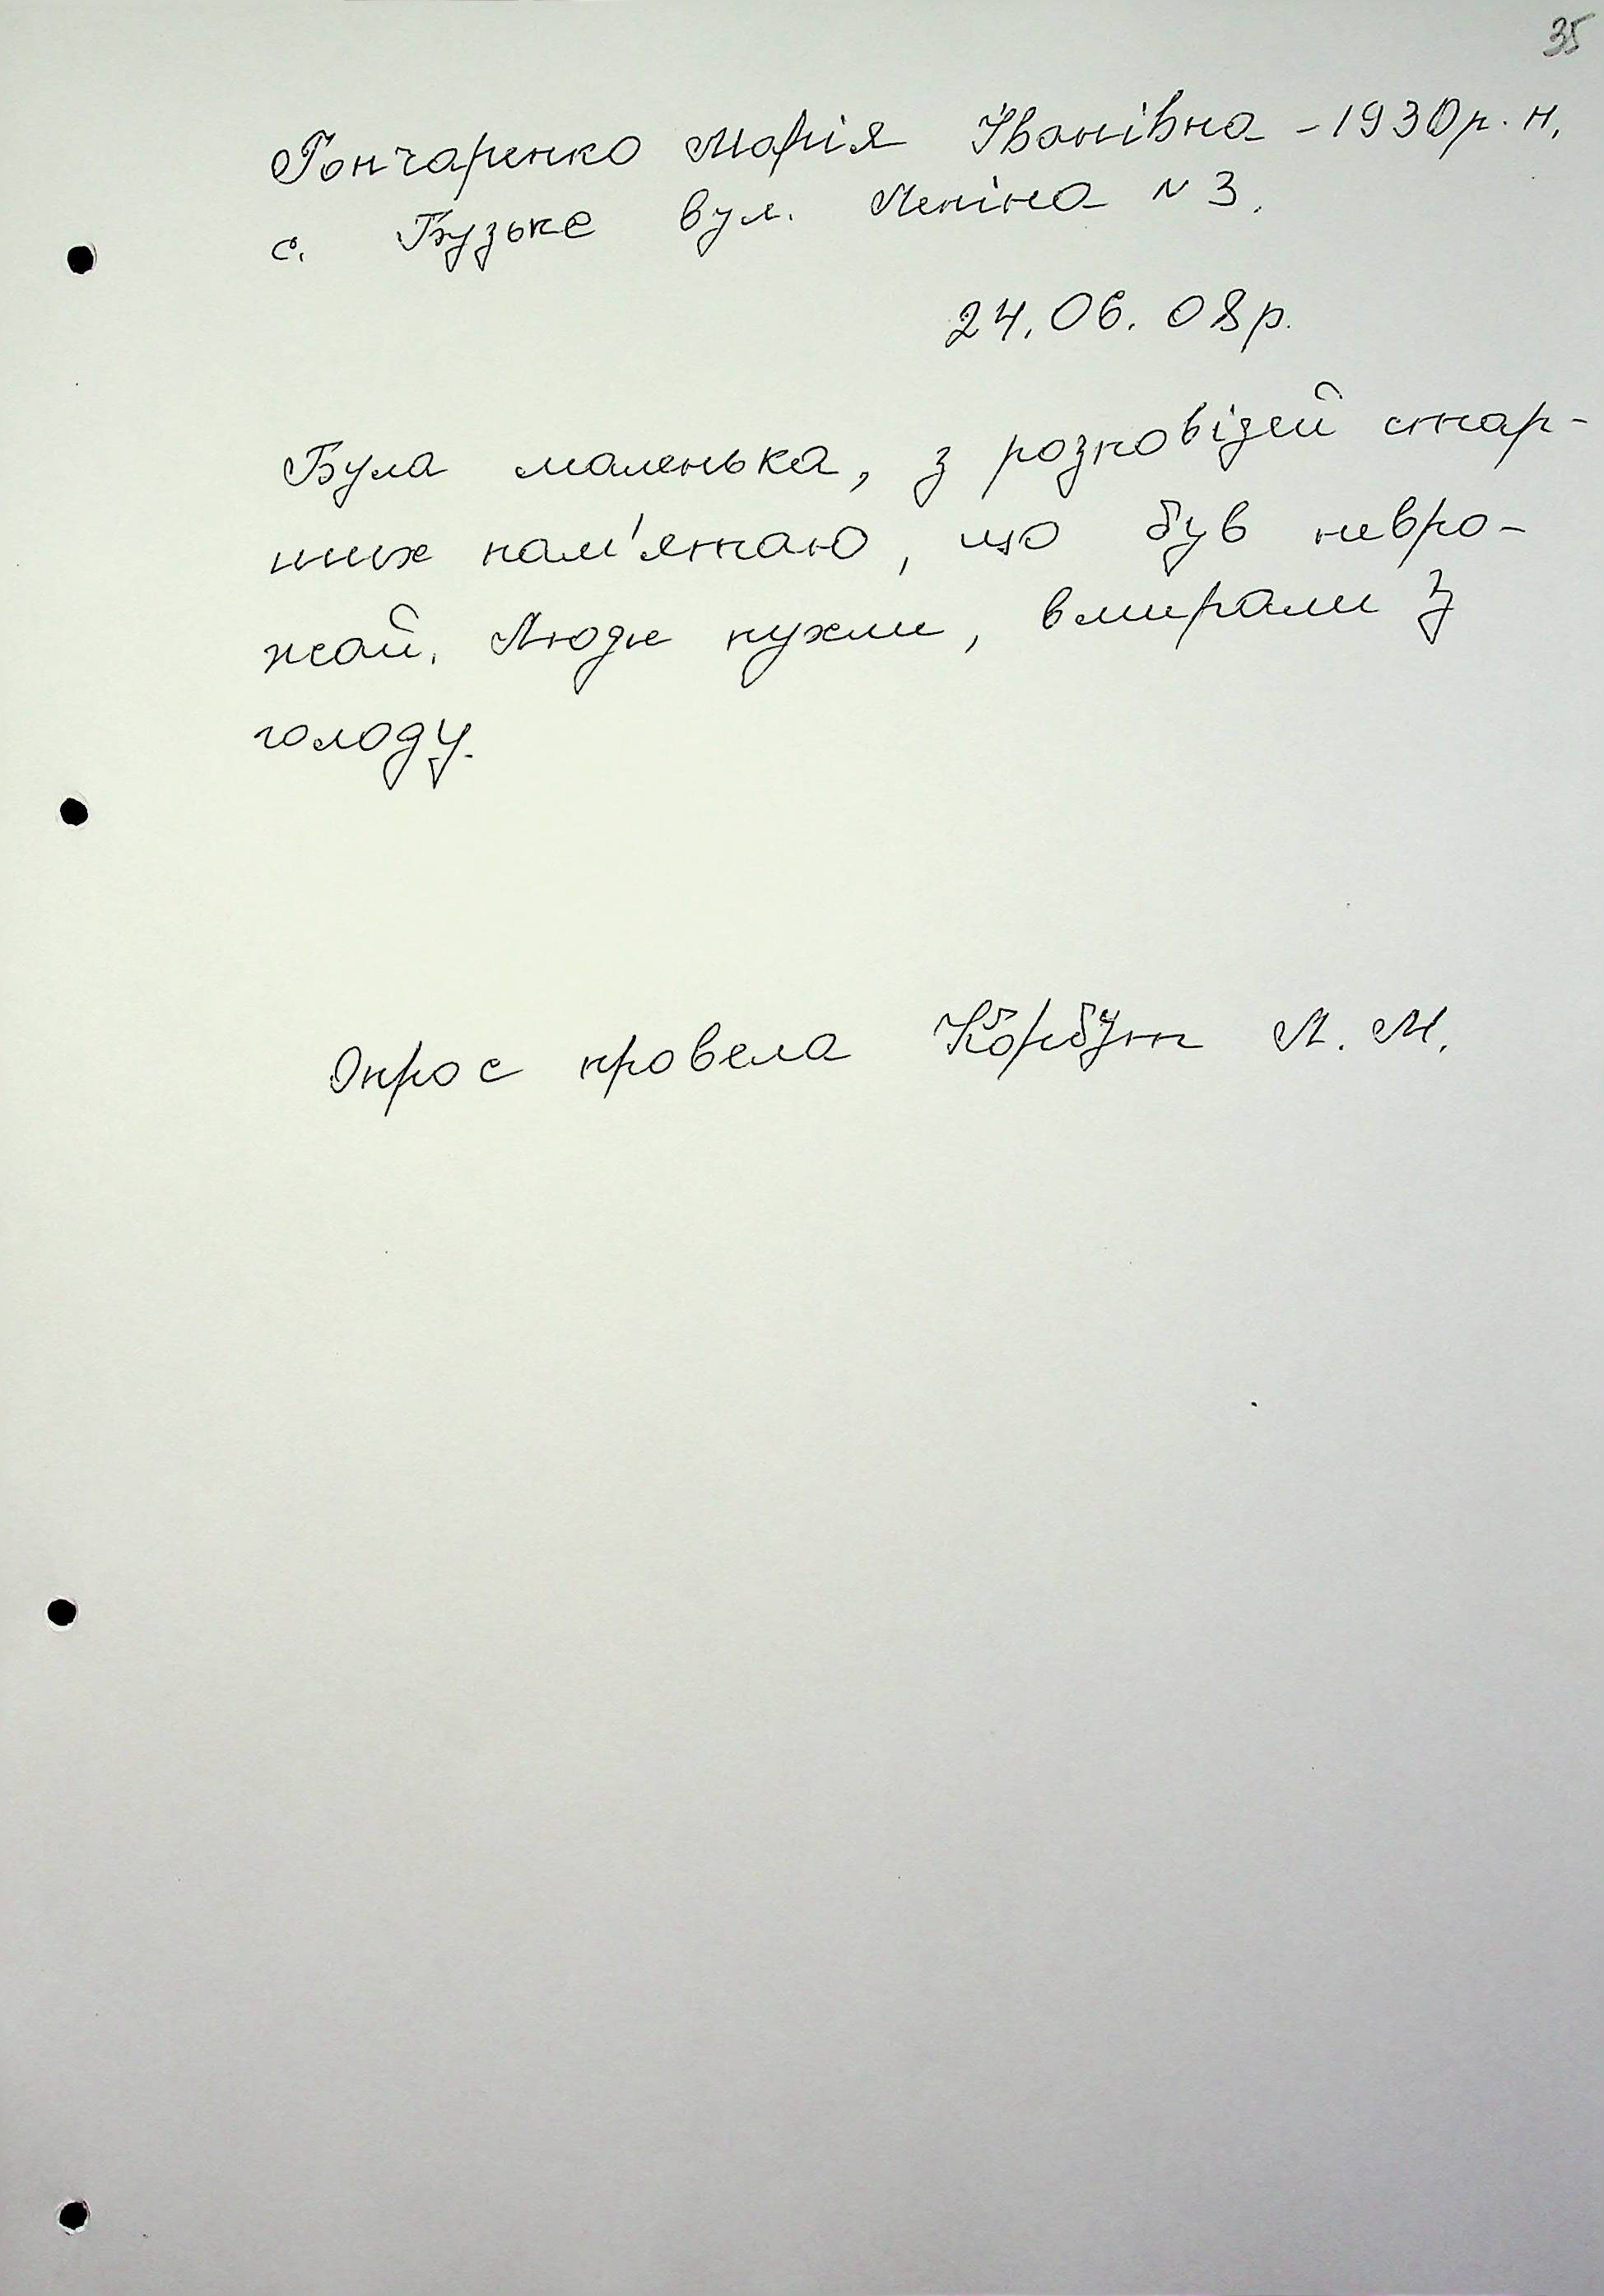 35
Гончаренко Марія Іванівна - 1930р. н.
с. Бузьке вул. Леніна N 3.
24. 06. 08р.
Була маленька, з розповідей стар-
ших пам'ятаю, що був невро-
жай. Люди пухли, вмирали з
голоду.
Опрос провела Корбут Л. М.